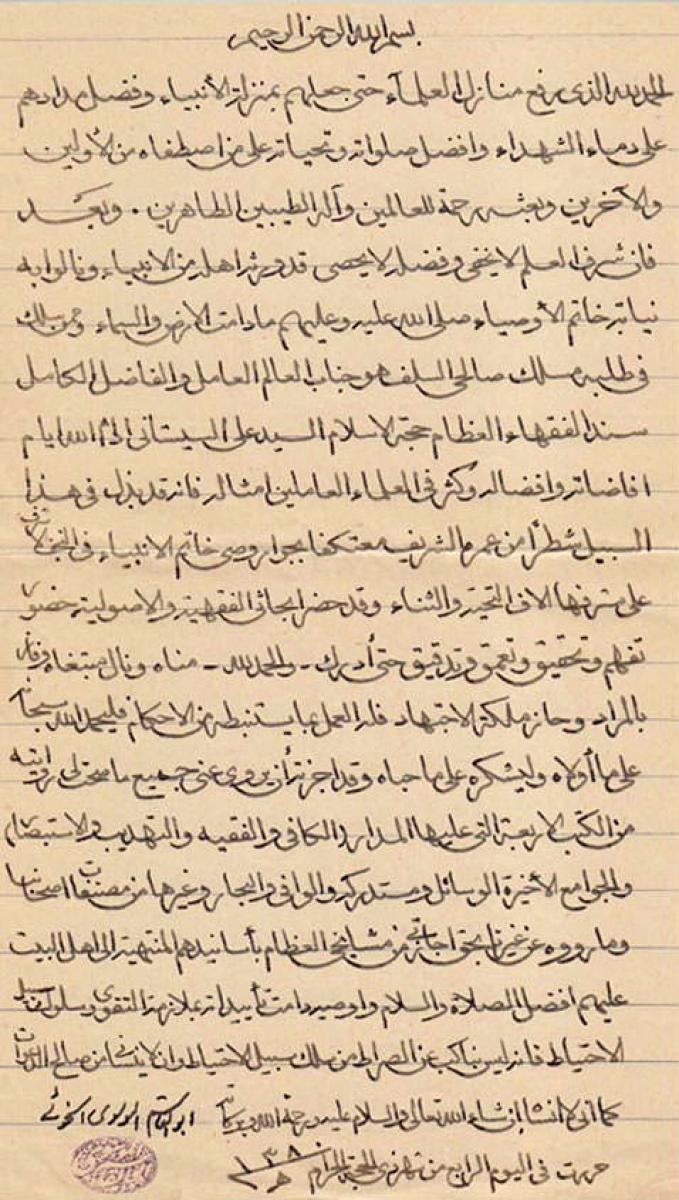 بسم الله الرحمن الرحيم
الحمد لله الذي رفع منازل العلماء حتى جعلهم بمنزلة الأنبياء وفضل مدادهم
على دماء الشهداء وافضل صلواته وتحياته على من اصطفاه من الأولين
والآخرين وبعثه رحمة للعالمين وآله الطيبين الطاهرين . وبعد
فان شرف العلم لا يخفى وفضله لا يحصى قد ورثه اهله من الانبياء ونالوا به
نيابة خاتم الأوصياء صلى الله عليه وعليهم ما دامت الارض والسماء وممن سلك
في طلبه مسلك صالحي السلف هو جناب العالم العامل والفاضل الكامل
سند الفقهاء العظام حجة الاسلام السيد علي السيستاني ادام الله ايام
افاضاته وافضاله وكثر في العلماء العاملين امثاله فانه قد بذل في هذا
السبيل شطرا من عمره الشريف معتكفا بجوار وصي خاتم الانبياء في النجف الاشرف
على مشرفها آلاف التحية والثناء وقد حضر ابحاثي الفقهية والاصولية حضور
تفهم وتحقيق وتعمق وتدقيق حتى أدرك - والحمد لله - مناه ونال مبتغاه وفاز
بالمراد وحاز ملكة الاجتهاد فله العمل بما يستنبطه من الاحكام فليحمد الله سبحانه
على ما أولاه وليشكره على ما حباه وقد اجزته أن يروي عني جميع ما صحت لي روايته
من الكتب الاربعة التي عليها المدار (الكافي والفقيه والتهذيب والاستبصار)
والجوامع الأخيرة الوسائل ومستدركه والوافي والبحار وغيرها من مصنفات اصحابنا
وما رووه عن غيرنا بحق اجازتي من مشايخي العظام بأسانيدهم المنتهية الى اهل البيت
عليهم افضل الصلاة والسلام واوصيه دامت تأييداته بملازمة التقوى وسلوك سبيل
الاحتياط فانه ليس بناكب عن الصراط من سلك سبيل الاحتياط وان لا ينساني من صالح الدعوات
كما اني لا انساه إن شاء الله تعالى والسلام عليه ورحمة الله وبركاته ابو القاسم الموسوي الخوئي
حررت في اليوم الرابع من شهر ذي الحجة الحرام ١٣٨٠ ه